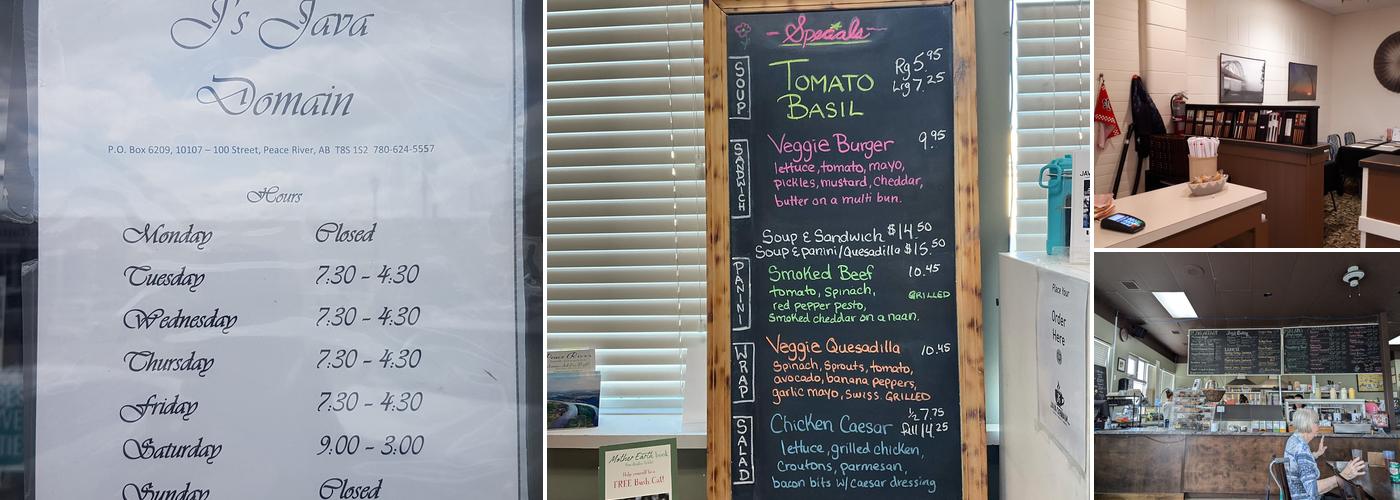 J's Java
Domain
P.O. Box 6209, 10107 – 100 Street, Peace River, AB T8S 1S2 780-624-5557
Hours
Monday Closed
Tuesday 7:30 - 4:30
Wednesday 7:30 - 4:30
Thursday 7:30 - 4:30
Friday 7:30 - 4:30
Saturday 9:00 - 3:00
Sunday Closed
- Specials -
SOUP
TOMATO Rg 5.95
BASIL Lrg 7.25
SANDWICH
Veggie Burger 9.95
lettuce, tomato, mayo,
pickles, mustard, cheddar,
butter on a multi bun.
Soup & Sandwich $14.50
Soup & panini/Quesadilla $15.50
PANINI
Smoked Beef 10.45
tomato, Spinach, GRILLED
red pepper pesto,
Smoked cheddar on a naan.
WRAP
Veggie Quesadilla 10.45
Spinach, Sprouts, tomato,
avocado, banana peppers,
garlic mayo, Swiss. GRILLED
SALAD
Chicken Caesar 1/2 7.75
full 14.25
lettuce, grilled chicken,
Croutons, parmesan,
bacon bits w/ Caesar dressing
Peace River
Mother Earth
FREE Bush Cal!
JAV
Place Your
Order
Here